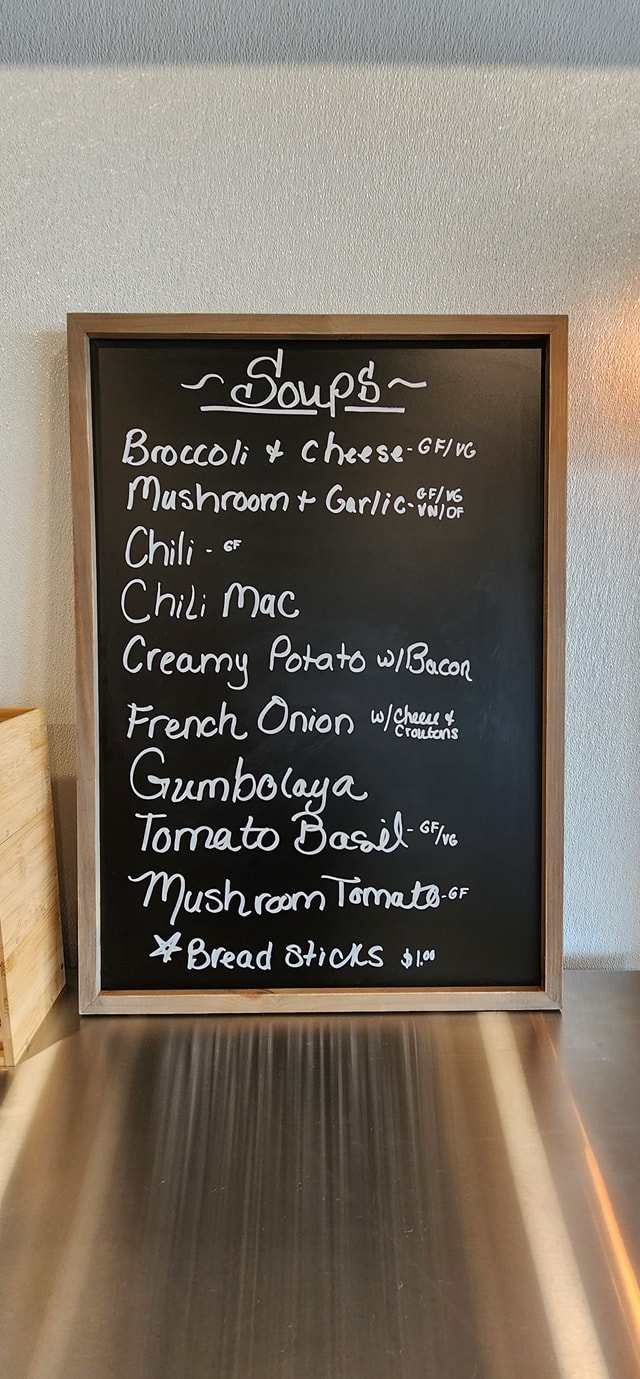 ~Soups~
Broccoli & Cheese - GF/VG
Mushroom + Garlic - GF/VG
VN/DF
Chili - GF
Chili Mac
Creamy Potato w/Bacon
French Onion w/Cheese &
Croutons
Gumbolaya
Tomato Basil - GF/VG
Mushroom Tomato - GF
☆ Bread sticks $1.00